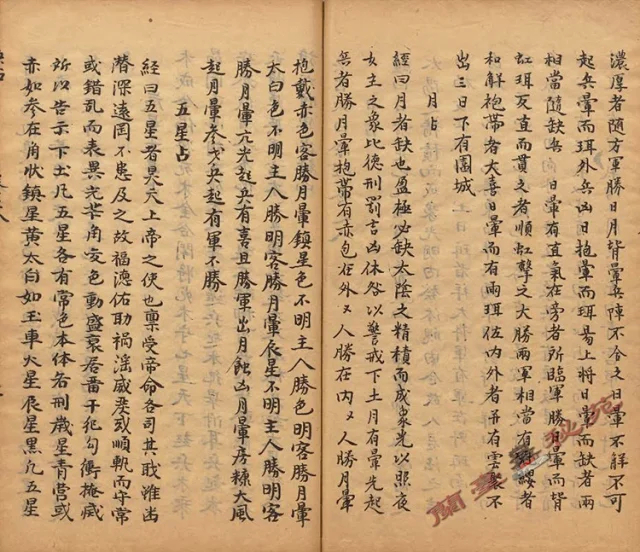 濃厚者隨方軍勝日月皆暈兵陣不合不解不可
起兵暈而珥外兵凶日抱暈而珥易上將日暈而缺者兩
相當隨缺兵 日暈有直氣在旁者所臨軍勝月暈而皆
虹珥灰直而貫之者順虹擊之大勝兩軍相當有
和解抱帶者大喜日暈而有兩珥佐內外者并有雲氣不
出三日下有圍城
月占
經曰月者缺也盈極必缺太陰之精積而成象光以照夜
女主之象比德刑罰吉凶休咎以警戒下土月有暈光起
兵者勝月暈抱帶有赤色在外人勝在內人勝月暈
抱戴赤色客勝月暈鎮星色不明主人勝色明客勝月暈
太白色不明主人勝明客勝月暈辰星不明主人勝明客
勝月暈亢光起兵有喜且勝軍出月蝕凶月暈房糠大風
起月暈參戈兵起有軍不勝
五星占
經曰五星者昊天上帝之使也稟受帝命各司其職雖幽
潛深遠罔不患及之故福德佑助禍淫威或順軌而守常
或錯亂而表異光芒角變色動盛衰居畱干犯勾衝掩滅
所以告示下土凡五星各有常色本体各刑歲星青營或
赤如參在角狀鎮星黃太白如玉車火星辰星黑凡五星